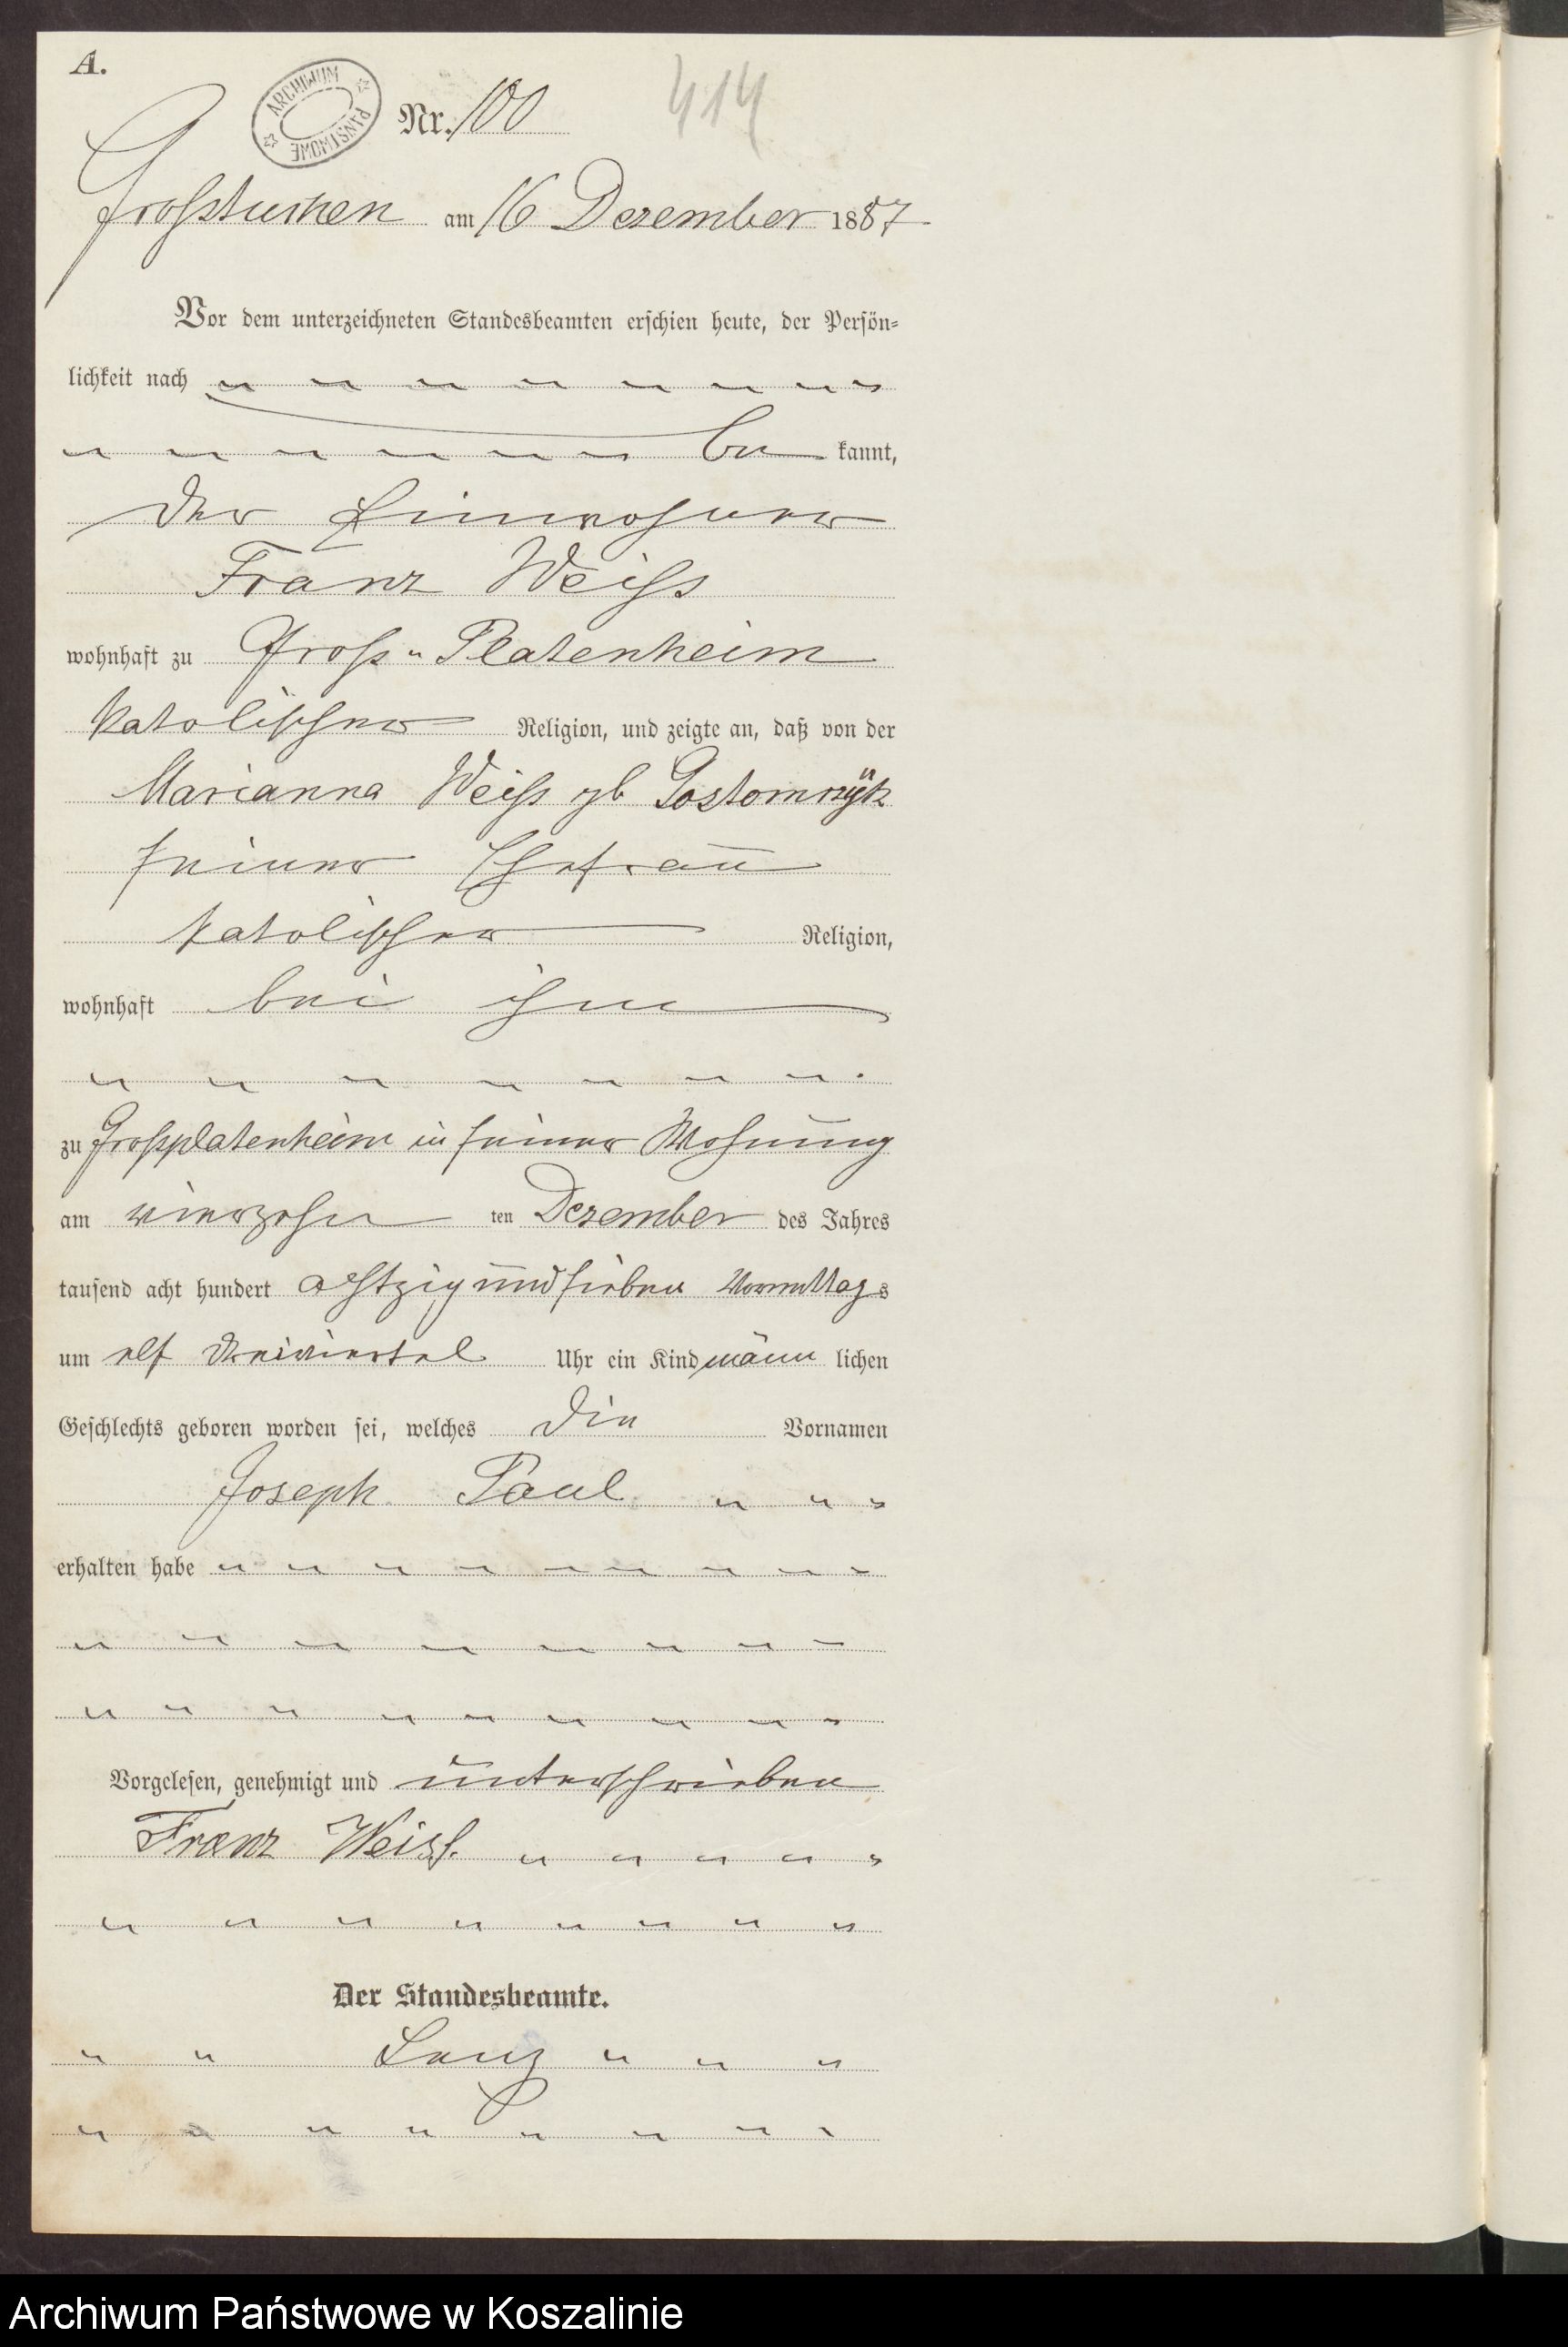 A.
ARCHIWUM PAŃSTWOWE
Nr. 100
414
Großtuchen am 16 Dezember 1887.
Vor dem unterzeichneten Standesbeamten erschien heute, der Persön-
lichkeit nach
be kannt,
der Einwohner
Franz Weiß
wohnhaft zu Groß-Platenheim
katolischer Religion, und zeigte an, daß von der
Marianna Weiß gb
seiner Ehefrau
katolischer Religion,
wohnhaft bei ihm
zu Großplatenheim in seiner Wohnung
am vierzehn ten Dezember des Jahres
tausend acht hundert achtzig und sieben Vormittags
um elf dreiviertel Uhr ein Kind männ lichen
Geschlechts geboren worden sei, welches die Vornamen
Joseph Paul
erhalten habe
Vorgelesen, genehmigt und unterschrieben
Franz Weiß.
Der Standesbeamte.
Archiwum Państwowe w Koszalinie